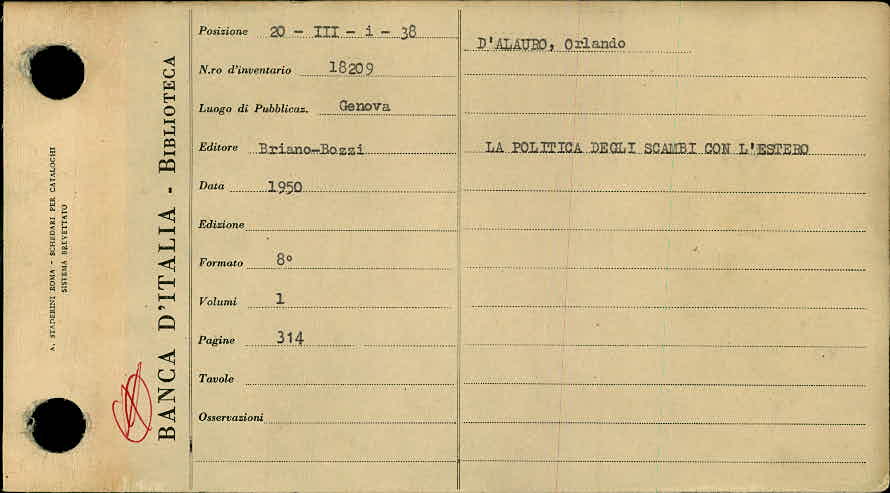 A. STADERINI ROMA - SCHEDARI PER CATALOCHI
SISTEMA BREVETTATO
BANCA D'ITALIA - BIBLIOTECA
Posizione 20 - III - i - 38
N.ro d'inventario 18209
Luogo di Pubblicaz. Genova
Editore Briano-Bozzi
Data 1950
Edizione
Formato 8º
Volumi 1
Pagine 314
Tavole
Osservazioni
D'ALAURO, Orlando
LA POLITICA DEGLI SCAMBI CON L'ESTERO